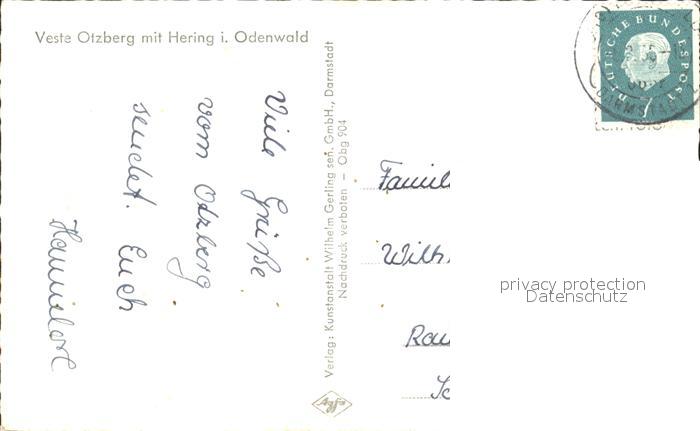 Veste Otzberg mit Hering i. Odenwald
Viele Grüße
vom Otzberg
sendet Euch
Verlag: Kunstanstalt Wilhelm Gerling sen. GmbH., Darmstadt
Nachdruck verboten — Obg 904
Agfa
DEUTSCHE BUNDESPOST
7
DARMSTADT
Famil
Wilh
Rau
privacy protection
Datenschutz